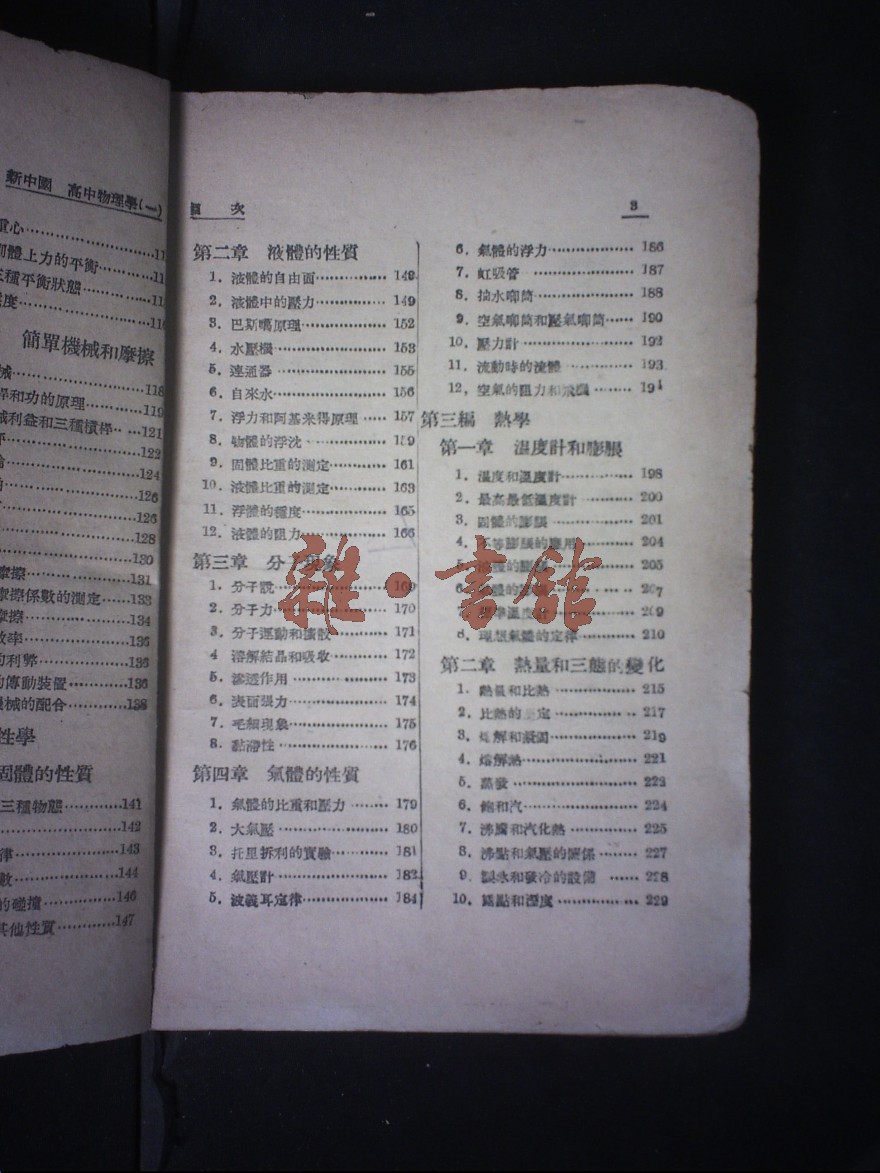 新中國 高中物理學(一)
重心
體上力的平衡
三種平衡狀態
度
簡單機械和摩擦
械 118
桿和功的原理 119
械利益和三種槓桿 121
122
124
126
126
128
130
摩擦 131
摩擦係數的測定 133
摩擦 134
效率 135
的利弊 135
的傳動裝置 136
機械的配合 138
性學
固體的性質
三種物態 141
142
律 143
數 144
的碰撞 146
其他性質 147
目 次 3
第二章 液體的性質
1. 液體的自由面 148
2. 液體中的壓力 149
3. 巴斯噶原理 152
4. 水壓機 153
5. 連通器 155
6. 自來水 156
7. 浮力和阿基米得原理 157
8. 物體的浮沈 159
9. 固體比重的測定 161
10. 液體比重的測定 163
11. 浮體的穩度 165
12. 液體的阻力 166
第三章 分子現象
1. 分子說 169
2. 分子力 170
3. 分子運動和擴散 171
4 溶解結晶和吸收 172
5. 滲透作用 173
6. 表面張力 174
7. 毛細現象 175
8. 黏滯性 176
第四章 氣體的性質
1. 氣體的比重和壓力 179
2. 大氣壓 180
3. 托里拆利的實驗 181
4. 氣壓計 183
5. 波義耳定律 184
6. 氣體的浮力 186
7. 虹吸管 187
8. 抽水喞筒 188
9. 空氣喞筒和壓氣喞筒 190
10. 壓力計 192
11. 流動時的流體 193
12. 空氣的阻力和飛機 194
第三編 熱學
第一章 溫度計和膨脹
1. 溫度和溫度計 198
2. 最高最低溫度計 200
3. 固體的膨脹 201
4. 不等膨脹的應用 204
5. 液體的膨脹 205
6. 氣體的膨脹 207
7. 標準溫度計 209
8. 理想氣體的定律 210
第二章 熱量和三態的變化
1. 熱量和比熱 215
2. 比熱的 定 217
3. 熔解和凝固 219
4. 熔解熱 221
5. 蒸發 222
6. 飽和汽 224
7. 沸騰和汽化熱 225
8. 沸點和氣壓的關係 227
9. 製冰和發冷的設備 228
10. 露點和溼度 229
雜·書館